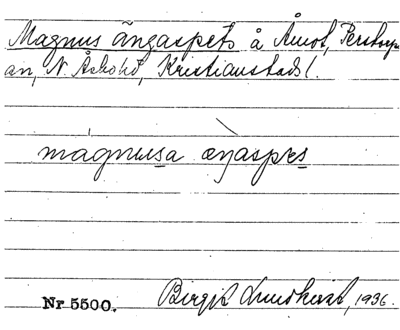 Magnus ängaspets å Åmot, Perstorps-
an, N. Åsbohd, Kristianstads l.
màgnusa æŋaspεs
Nr 5500. Birgit Lundkvist, 1936.